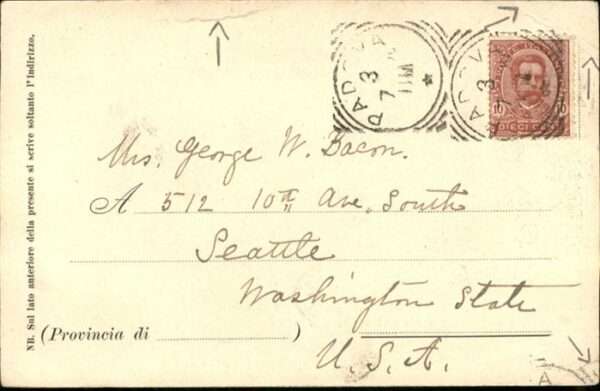 PADOVA
7 3
PADOVA
7 3
POSTE ITALIANE
10 10
DIECI
Mrs. George W. Bacon.
A 512 10th Ave. South
Seattle
Washington State
(Provincia di )
U.S.A.
NB. Sul lato anteriore della presente si scrive soltanto l'Indirizzo.
A